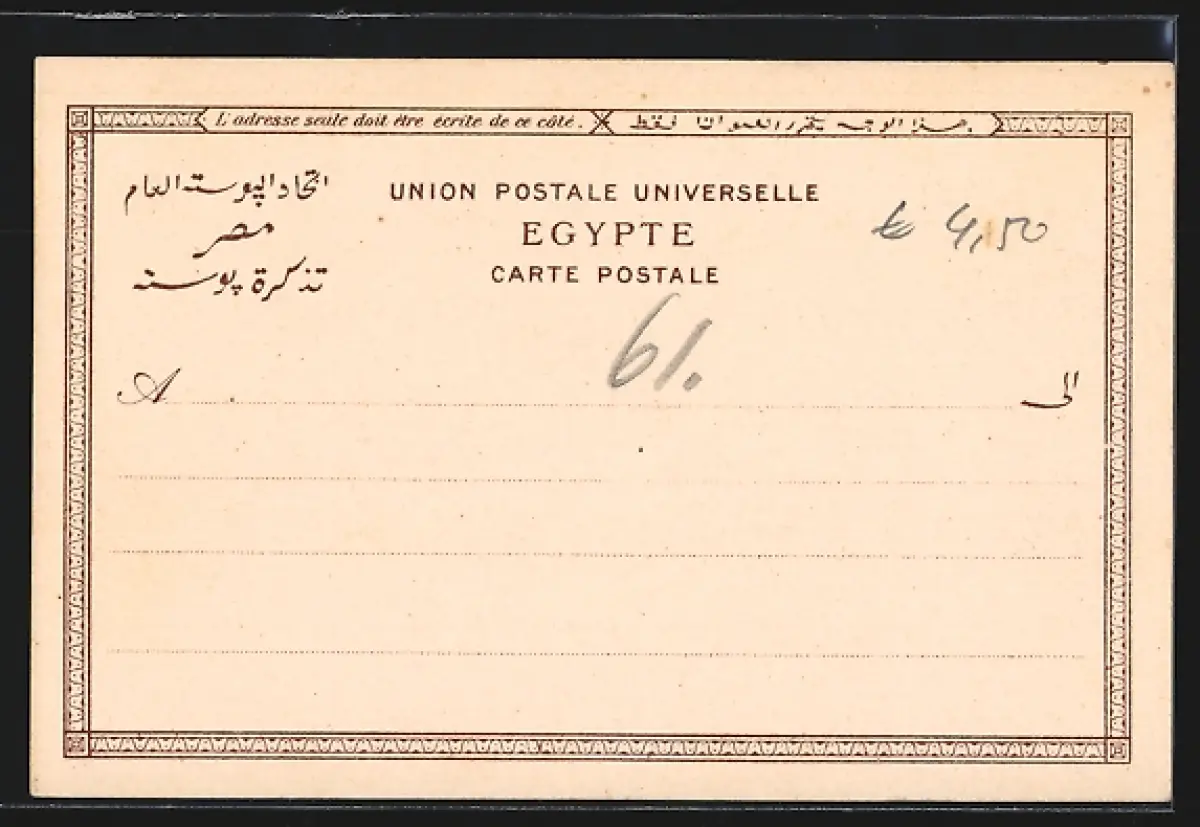 L'adresse seule doit être écrite de ce côté. هذا الوجه يتحرر العنوان فقط.
اتحاد البوسته العام
UNION POSTALE UNIVERSELLE
مصر
EGYPTE
€ 4,50
تذكرة بوسته
CARTE POSTALE
61.
A الى